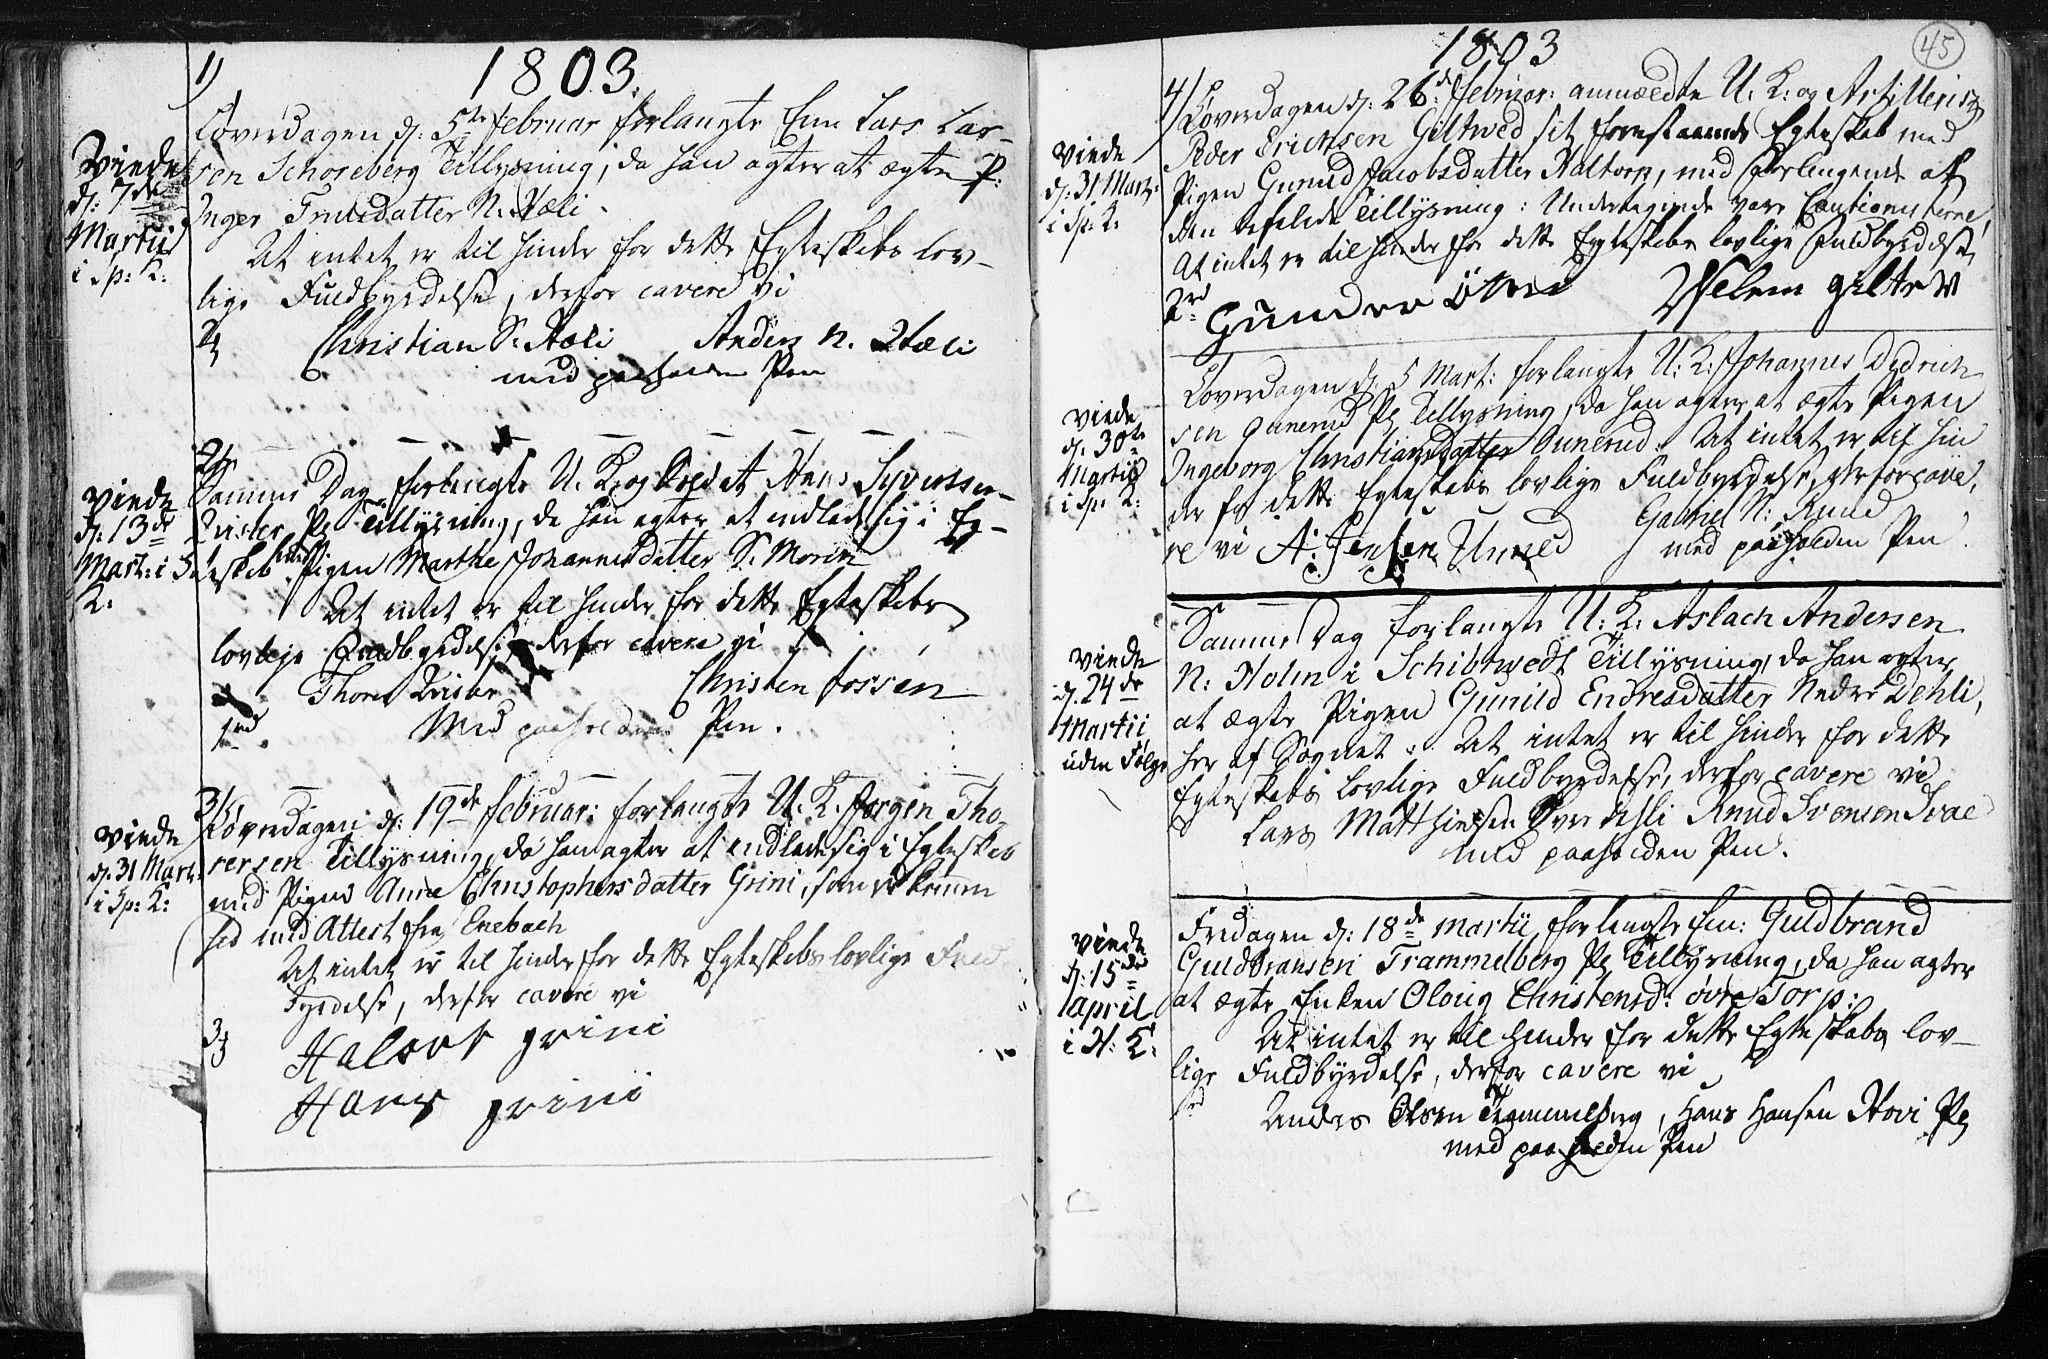 1)
1803.
Løverdagen d: 5te februar forlangte Enm Lars Lar-
sen Schoreberg Tillysning, da han agter at ægte P:
Inger Truls datter N. Hæli.
At intet er til hinder for dette Egteskabs lov-
lige Fuldbyrdelse, derfor cavere vi
Christian S. Hæli Anders N. Hæli
med paaholden Pen
Viede
d: 7de
Martii
i Sp: K:
2)
Samme Dag forlangte U. K. og Soldat Hans Syversen
Tillysning, da han agter at indlade sig i Eg-
teskab med Pigen Marthe Johannesdatter S. Moren
At intet er til hinder for dette Egteskabs
lovlige Fuldbyrdelse, derfor cavere vi
Thorer Christen Fossen
Med paaholden Pen.
Viede
d: 13de
Mart: i S
K:
3)
Løverdagen d: 19de februar: forlangte U. K. Jørgen Tho-
rersen Tillysning, da han agter at indlade sig i Egteskab
med Pigen Anne Christophersdatter Grini, som er kommen
hid med Attest fra Enebach
At intet er til hinder for dette Egteskabs lovlige Fuld
byrdelse, derfor cavere vi
Halvor grini
Hans grini
Viede
d: 31 Mart:
i Sp: K:
45
1803
4)
Løverdagen d: 26de februar: anmeldte U. K: og Artillerist
Peder Erichsen Giltved sit forestaaende Egteskab med
Pigen Gunild Jacobsdatter Haltorp, med Forlangende af
den befalede Tillysning: Undertegnede vare Cautionisterne,
At intet er til hinder for dette Egteskabs lovlige Fuldbyrdelse
Gunder Velem giltev
Viede
d: 31 Mart:
i Sp: K:
Løverdagen d: 5 Mart: forlangte U: K: Johannes Dydrich
sen Tillysning, da han agter at ægte Pigen
Ingeborg Christiansdatter At intet er til hin
der for dette Egteskabs lovlige Fuldbyrdelse, derfor cave,
re vi A. Jensen Gabriel N: Ruud
med paaholden Pen.
Viede
d. 30te
Martii
i Sp: K:
Samme Dag forlangte U: K: Aslach Andersen
N: Holm i Schibtwedt Tillysning, da han agter
at ægte Pigen Gunild Endresdatter Nedre Dehli,
her af Sognet. At intet er til hinder for dette
Egteskabs lovlige Fuldbyrdelse, derfor cavere vi
Lars Matthiesen Øvre dehli Knud Svensen
med paaholden Pen.
Viede
d. 24de
Martii
uden Følge
Fredagen d: 18de Martii forlangte Enm: Guldbrand
Guldbransen Trammelberg Tillysning, da han agter
at ægte Enken Oloug Christensd: øvre Torp:
At intet er til hinder for dette Egteskabs lov-
lige Fuldbyrdelse, derfor cavere vi
Anders Olsen Trammelberg, Hans Hansen Hovi
med paaholden Pen
Viede
d: 15de
April
i H: K: